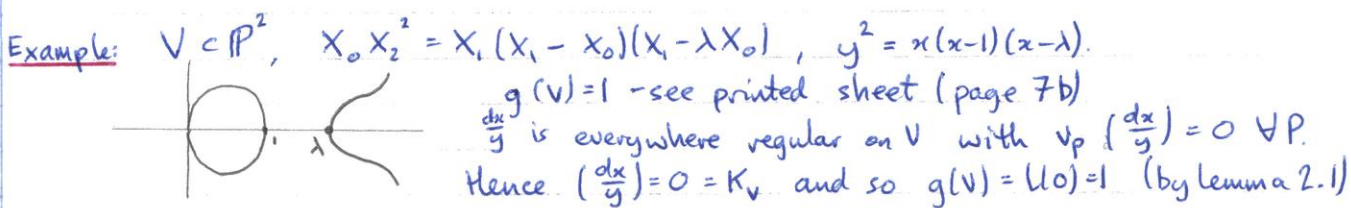 Example: V ⊂ ℙ², X₀X₂² = X₁(X₁ - X₀)(X₁ - λX₀), y² = x(x-1)(x-λ).
g(V)=1 - see printed sheet (page 7b)
dx/y is everywhere regular on V with v_P(dx/y) = 0 ∀P.
1 λ
Hence (dx/y) = 0 = K_V and so g(V) = l(0) = 1 (by Lemma 2.1)